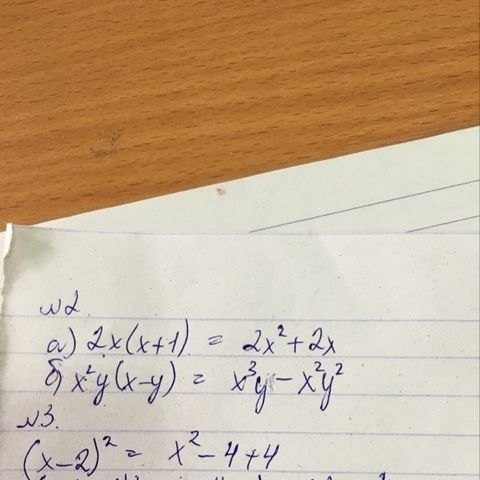 №2.
а) 2x(x+1) = 2x²+2x
б) x²y(x-y) = x³y - x²y²
№3.
(x-2)² = x² - 4 + 4